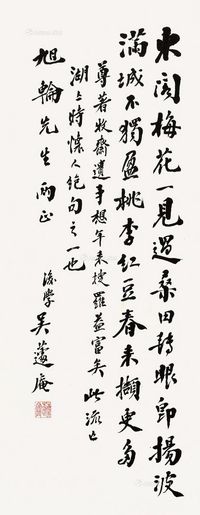 東閣梅花一見過桑田轉眼即揚波
滿城不獨盈桃李紅豆春來擷更多
尊著牧齋遺事想年來搜羅益富矣此流亡
湖上時懷人絕句之一也
旭輪先生兩正
後學吳藕庵